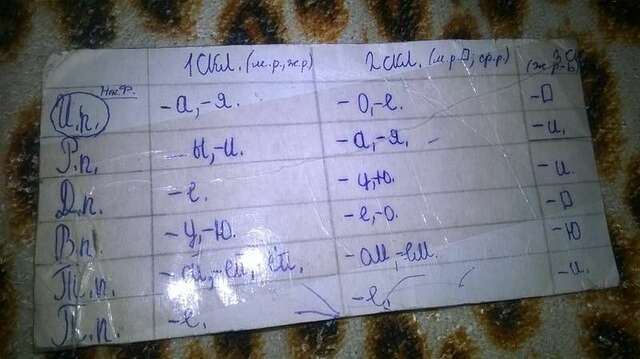 1 скл. (м.р., ж.р) 2 скл. (м.р.□, ср.р) 3 ск
(ж.р-ь)
Нач.Ф.
И.п. -а,-я. -о,-е. -□
Р.п. -ы,-и. -а,-я. -и.
Д.п. -е. -у,-ю. -и.
В.п. -у,-ю. -е,-о. -□
Т.п. -ой, -ей, -ёй. -ом,-ем. -ю
П.п. -е. -е. -и.